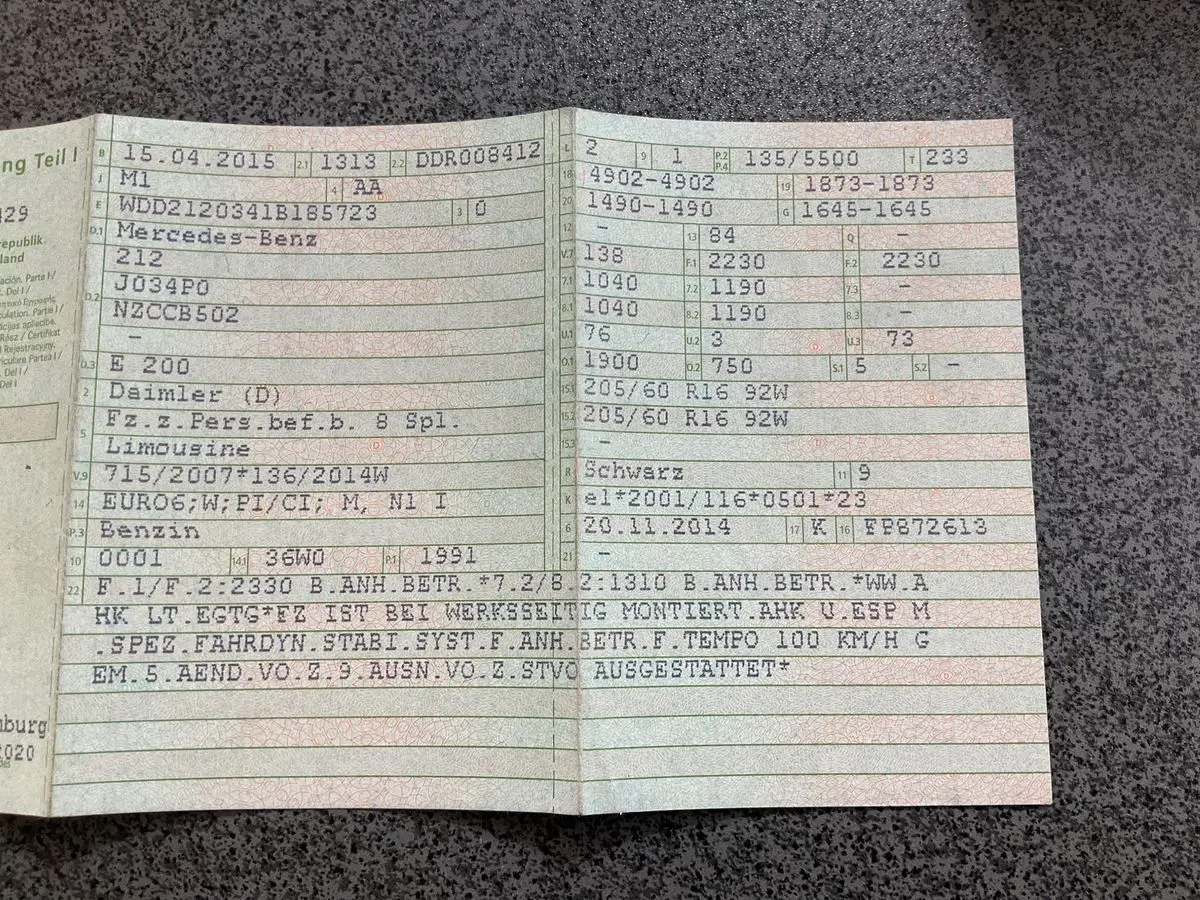 ng Teil I
429
epublik
land
ación. Parte I /
. Del I /
culation. Parte I /
cijas apliecība.
Rész / Certifikat
Rejestracyjny.
iculare Partea I /
. Del I /
Del I
burg
2020
B 15.04.2015 2.1 1313 2.2 DDR008412
J M1 4 AA
E WDD2120341B185723 3 0
D.1 Mercedes-Benz
212
D.2 J034P0
NZCCB502
-
D.3 E 200
2 Daimler (D)
5 Fz.z.Pers.bef.b. 8 Spl.
Limousine
V.9 715/2007*136/2014W
14 EURO6;W;PI/CI; M, N1 I
P.3 Benzin
10 0001 14.1 36W0 P.1 1991
L 2 9 1 P.2 P.4 135/5500 T 233
18 4902-4902 19 1873-1873
20 1490-1490 G 1645-1645
12 - 13 84 Q -
V.7 138 F.1 2230 F.2 2230
7.1 1040 7.2 1190 7.3 -
8.1 1040 8.2 1190 8.3 -
U.1 76 U.2 3 U.3 73
O.1 1900 O.2 750 S.1 5 S.2 -
15.1 205/60 R16 92W
15.2 205/60 R16 92W
15.3 -
R Schwarz 11 9
K e1*2001/116*0501*23
6 20.11.2014 17 K 16 FP872613
21 -
22 F.1/F.2:2330 B.ANH.BETR.*7.2/8.2:1310 B.ANH.BETR.*WW.A
HK LT.EGTG*FZ IST BEI WERKSSEITIG MONTIERT.AHK U.ESP M
.SPEZ.FAHRDYN.STABI.SYST.F.ANH.BETR.F.TEMPO 100 KM/H G
EM.5.AEND.VO.Z.9.AUSN.VO.Z.STVO AUSGESTATTET*